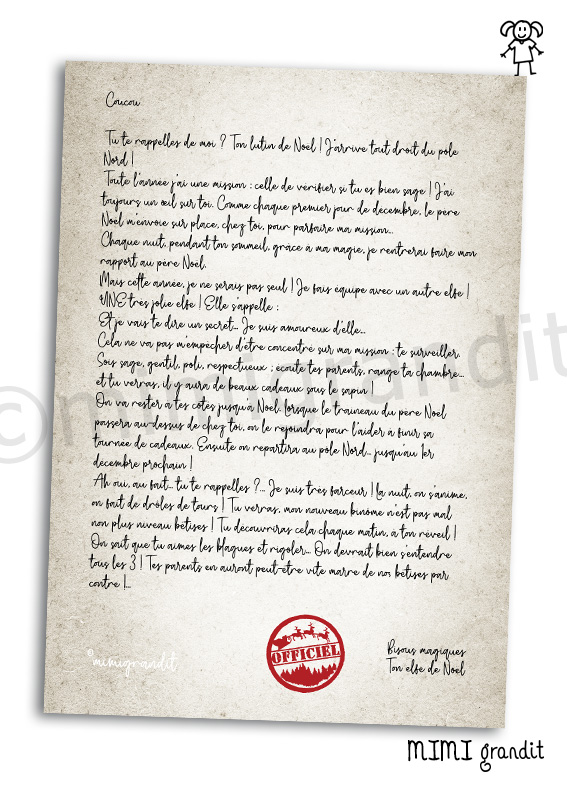 Coucou
Tu te rappelles de moi ? Ton lutin de Noël ! J'arrive tout droit du pôle
Nord !
Toute l'année j'ai une mission : celle de vérifier si tu es bien sage ! J'ai
toujours un œil sur toi. Comme chaque premier jour de décembre, le père
Noël m'envoie sur place, chez toi, pour parfaire ma mission...
Chaque nuit, pendant ton sommeil, grâce à ma magie, je rentrerai faire mon
rapport au père Noël.
Mais cette année, je ne serais pas seul ! Je fais équipe avec un autre elfe !
UNE très jolie elfe ! Elle s'appelle :
Et je vais te dire un secret... Je suis amoureux d'elle...
Cela ne va pas m'empêcher d'être concentré sur ma mission : te surveiller.
Sois sage, gentil, poli, respectueux ; écoute tes parents, range ta chambre...
et tu verras, il y aura de beaux cadeaux sous le sapin !
On va rester à tes côtés jusqu'à Noël. Lorsque le traineau du père Noël
passera au-dessus de chez toi, on le rejoindra pour l'aider à finir sa
tournée de cadeaux. Ensuite on repartira au pôle Nord... jusqu'au 1er
décembre prochain !
Ah oui, au fait... tu te rappelles ?... Je suis très farceur ! La nuit, on s'anime,
on fait de drôles de tours ! Tu verras, mon nouveau binôme n'est pas mal
non plus niveau bêtises ! Tu découvriras cela chaque matin, à ton réveil !
On sait que tu aimes les blagues et rigoler... On devrait bien s'entendre
tous les 3 ! Tes parents en auront peut-être vite marre de nos bêtises par
contre !...
OFFICIEL
Bisous magiques
Ton elfe de Noël
©mimigrandit
©mimigrandit
MIMI grandit